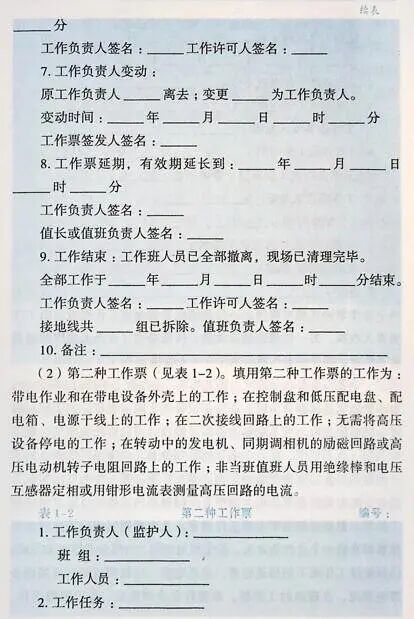 续表
______分
工作负责人签名：______工作许可人签名：______
7. 工作负责人变动：
原工作负责人______离去；变更______为工作负责人。
变动时间：______年______月______日______时______分
工作票签发人签名：______
8. 工作票延期，有效期延长到：______年______月______日
______时______分
工作负责人签名：______
值长或值班负责人签名：______
9. 工作结束：工作班人员已全部撤离，现场已清理完毕。
全部工作于______年______月______日______时______分结束。
工作负责人签名：______工作许可人签名：______
接地线共______组已拆除。值班负责人签名：______
10. 备注：______
（2）第二种工作票（见表 1-2）。填用第二种工作票的工作为：
带电作业和在带电设备外壳上的工作；在控制盘和低压配电盘、配
电箱、电源干线上的工作；在二次接线回路上的工作；无需将高压
设备停电的工作；在转动中的发电机、同期调相机的励磁回路或高
压电动机转子电阻回路上的工作；非当班值班人员用绝缘棒和电压
互感器定相或用钳形电流表测量高压回路的电流。
表 1-2 第二种工作票 编号：
1. 工作负责人（监护人）：______
班 组：______
工作人员：______
2. 工作任务：______